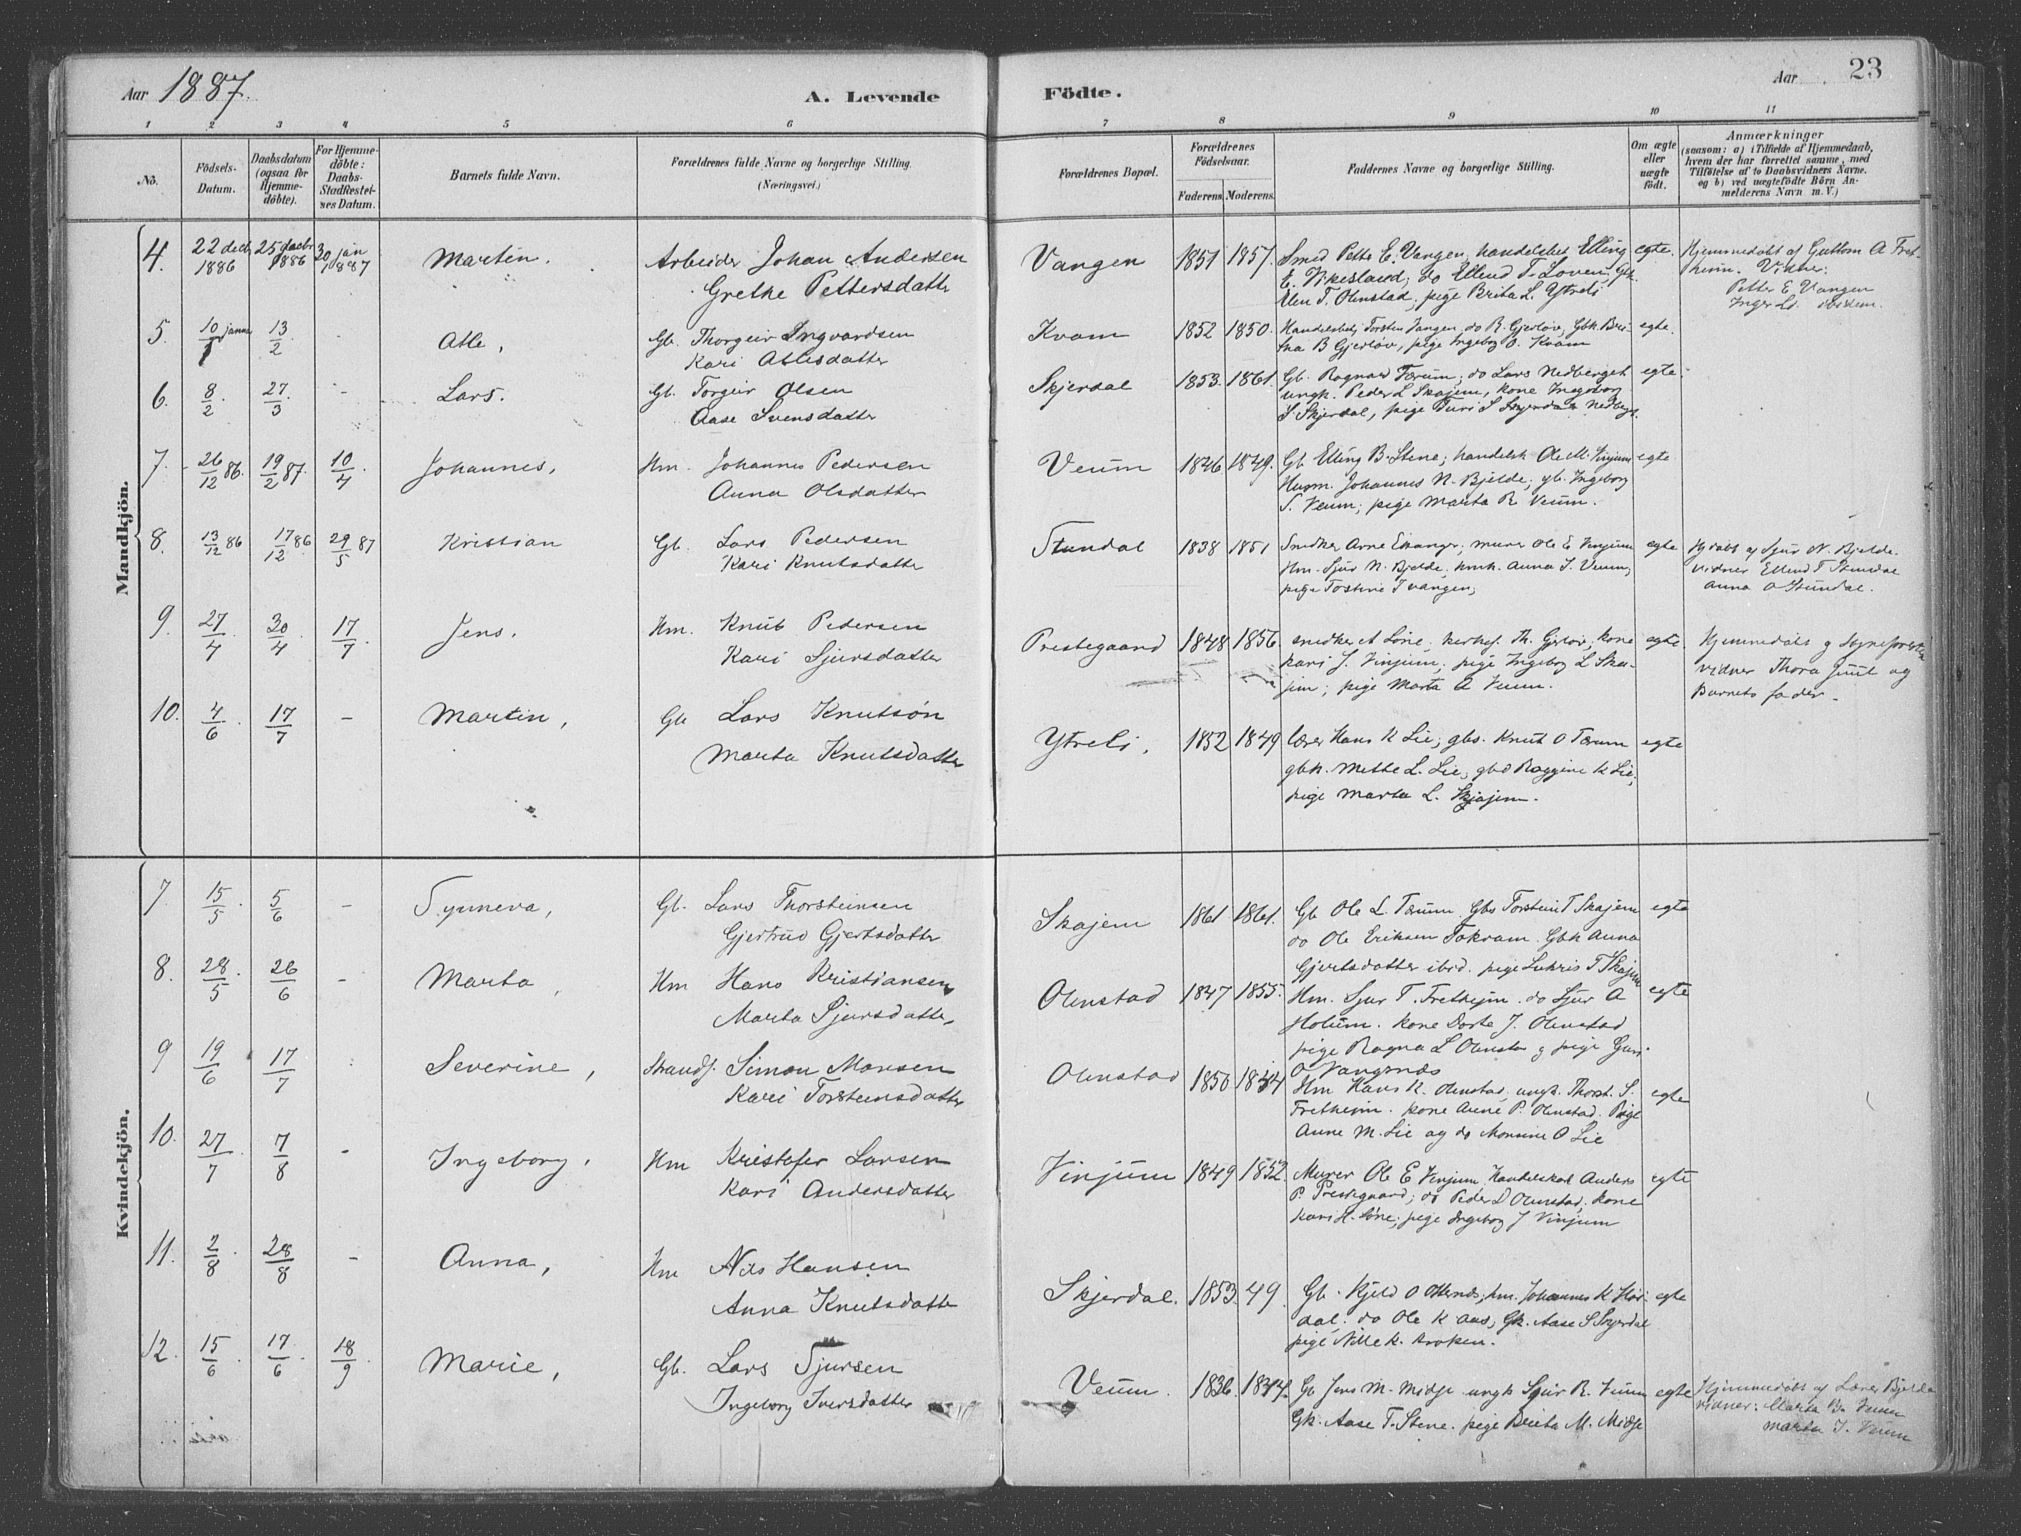 Aar 1887.
A. Levende Födte.
Aar 23
1 2 3 4 5 6 7 8 9 10 11
No.
Födsels-Datum.
Daabsdatum (ogsaa for Hjemmedöbte).
For Hjemmedöbte: Daabs-Stadfestelses Datum.
Barnets fulde Navn.
Forældrenes fulde Navne og borgerlige Stilling.
(Næringsvei.)
Forældrenes Bopæl.
Forældrenes Födselsaar.
Faderens. Moderens.
Faddernes Navne og borgerlige Stilling.
Om ægte eller uægte födt.
Anmærkninger
(saasom: a) i Tilfælde af Hjemmedaab, hvem der har forrettet samme, med Tilföielse af to Daabsvidners Navne. og b) ved uægtefödte Börn Anmelderens Navn m. V.)
Mandkjön.
4. 22 decb 1886 25 decbr 1886 30 jan 1887 Martin. Arbeider Johan Andersen
Grethe Pettersdatter
Vangen 1851 1857. Smed Petter E. Vangen, handelsbet Elling
E. Vikesland; do Ellend T. Loven, Gk.
T. Olmstad, pige Brita L Ytreli
egte. Hjemmedöbt af Guttorm A Fretheim. Vidner:
Petter E Vangen
5. 10/1 januar 13/2 - Atle, Gb. Thorgeir Ingvardsen
Kari Atlesdatter
Kvam 1852 1850. Handelsbetj Torsten Vangen, do R. Gjerløv, Gbk
B Gjerløv, pige Ingeborg O. Kvam
egte.
6. 8/2. 27/3. - Lars. Gb. Torgeir Olsen
Aase Svensdatter
Skjerdal 1853. 1861. Gb. Ragnar Tærum, do Lars Nedberget
ungk. Peder L Skajem, kone Ingeborg
S Skjerdal, pige Turi S Skjerdal
egte.
7. 26/12 86. 19/2 87. 10/4. Johannes, Hm. Johannes Pedersen
Anna Olsdatter
Veum 1846 1849. Gb. Elling B. Stene; handelsk Ole M. Vinjum
Husm. Johannes N. Bjelde; gb. Ingeborg
S. Veum; pige Marta R Veum.
egte
8. 13/12 86 17/12 86 29/5 87 Kristian Gb. Lars Pedersen
Kari Knutsdatter
Stundal 1838 1851 Snedker Arne murer Ole E Vinjum
Hm. Sjur N. Bjelde, hmk. Anna J. Veum,
pige Tostine J vangen;
egte Hjdöbt af Sjur N. Bjelde.
vidner Ellend T Stundal
Anna O Stundal.
9. 27/4. 30/4. 17/7. Jens. Hm. Knut Pedersen
Kari Sjursdatter
Prestegaard 1848 1856 snedker A Lone, Th. Gjerløv, kone
Kari J. Vinjum, pige Ingeborg L Skajem; pige Marta A Veum.
egte. Hjemmedöbt af
vidner Thora Juul og
Barnets fader.
10. 4/6 17/7 - Martin, Gb Lars Knutsøn
Marta Knutsdatter
Ytreli, 1852 1849 lærer Hans K Lie; gbs. Knut O Tærum
gbk. Mette L. Lie, gbd Raggine K Lie,
pige Marta L. Skjajem.
egte
Kvindekjön.
7 15/5. 5/6 - Synneva, Gb. Lars Thorsteinsen
Gjertrud Gjertsdatter
Skajem 1861 1861. Gb Ole L. Tærum. Gbs Torstein T Skajem
do Ole Eriksen Tokvam. Gbk Anna
Gjertsdatter ibid. pige T Skajem
egte
8. 28/5. 26/6 - Marta, Hm Hans Kristiansen
Marta Sjursdatter,
Olmstad 1847 1855. Hm. Sjur T. Fretheim. do Sjur A
Holum. kone Dorte J. Olmstad
pige Ragna L Olmstad og pige Guri
O Vangsnæs
egte
9 19/6 17/7 Severine, Strands. Simon Monsen
Kari Torsteinsdatter
Olmstad 1850 1844 Hm Hans K. Olmstad, ungk. Thorst. S.
Fretheim. kone Anne P. Olmstad. Pige
Anne M. Lie og do Monsine O Lie
egte
10. 27/7 7/8 - Ingeborg, Hm Kristofer Larsen
Kari Andersdatter
Vinjum 1849 1852. Murer Ole E Vinjum. Handelskarl Anders
P Prestegaard; do Peder D Olmstad, kone
Kari H. Lone; pige Ingeborg J Vinjum
egte
11. 2/8. 28/8 - Anna, Hm Nils Hansen
Anna Knutsdatter
Skjerdal. 1853. 49. Gb. Kjeld O Otternes, hm. Johannes K
do Ole K Aas, Gk. Aase S Skjerdal
pige Nille K. Kroken.
egte
12. 15/6. 17/6. 18/9. Marie, Gb. Lars Sjursen
Ingeborg Iversdatter
Veum. 1836. 1844. Gb Jens M. Midje ungk Sjur R. Veum
Gk. Aase T. Stene. pige Brita M. Midje
egte Hjemmedöbt af Lærer Bjelde
vidner: Maria B. Veum
Marta J. Veum